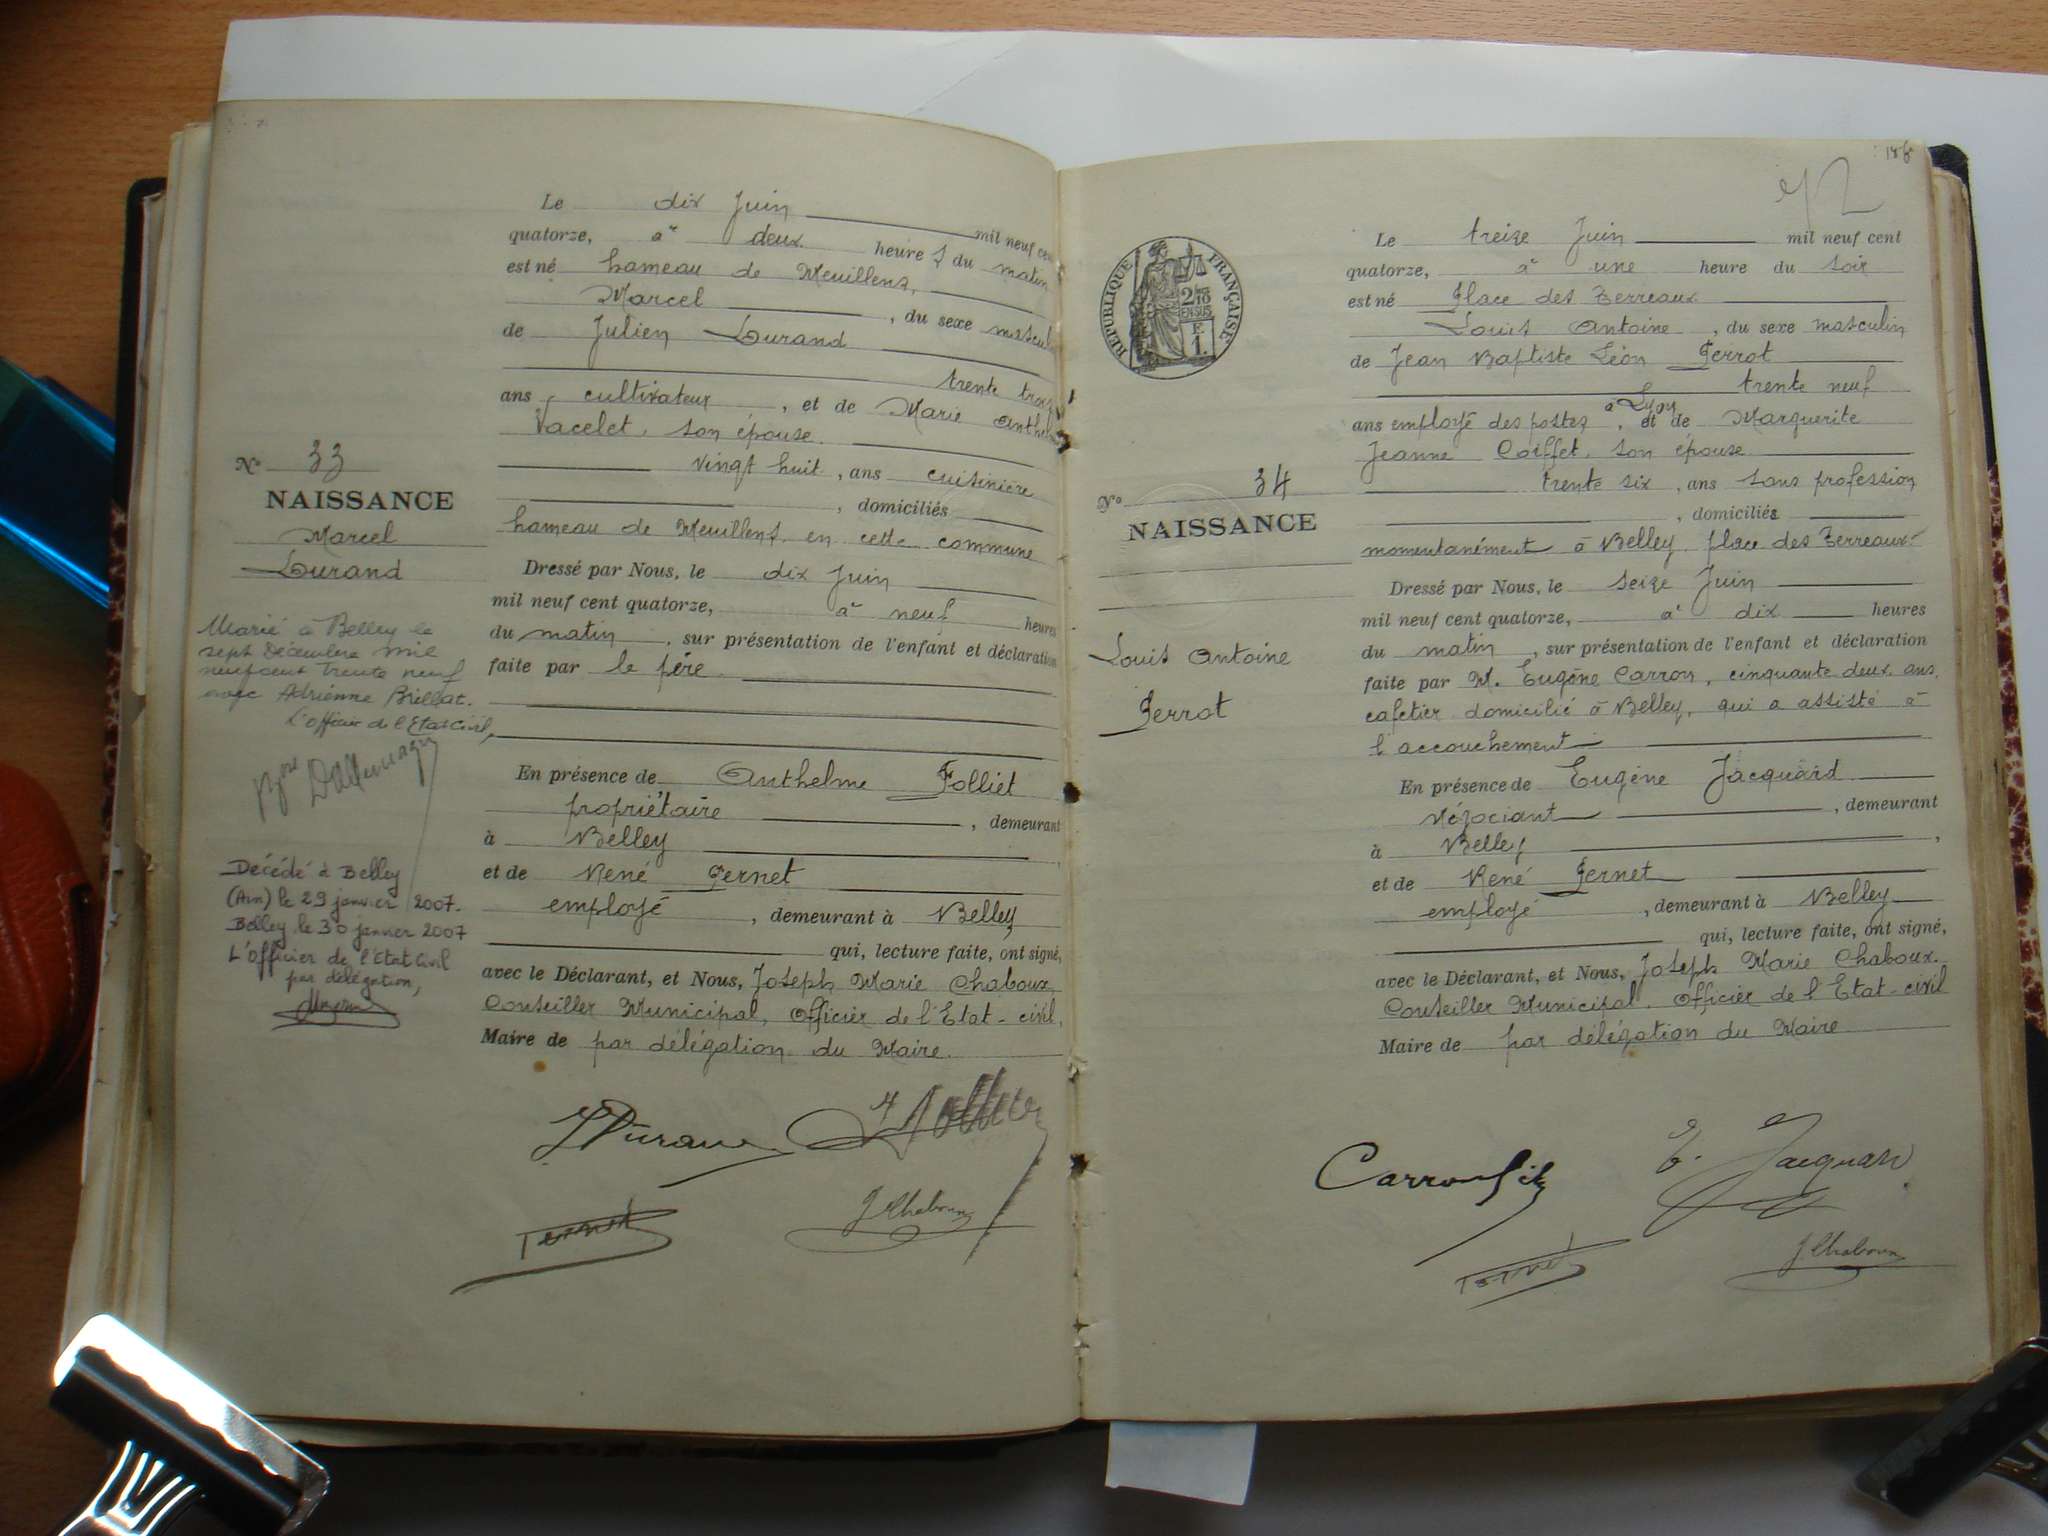 Le dix Juin mil neuf cen
quatorze, à deux heures du matin
est né hameau de Meuillens,
Marcel, du sexe mascul
de Julien Durand
trente trois
ans cultivateur, et de Marie Anthel
Vacelet, son épouse.
vingt huit, ans cuisinière
, domiciliés
hameau de Meuillens, en cette commune
Dressé par Nous, le dix Juin
mil neuf cent quatorze, à neuf heures
du matin, sur présentation de l'enfant et déclaration
faite par le père.
En présence de Anthelme Folliet
propriétaire, demeurant
à Belley,
et de René Pernet
employé, demeurant à Belley
qui, lecture faite, ont signé,
avec le Déclarant, et Nous, Joseph Marie Chaboux,
Conseiller Municipal, Officier de l'Etat-civil,
Maire de par délégation du Maire.
JDurand
JChaboux
N° 33
NAISSANCE
Marcel
Durand
Marié à Belley le
sept Décembre mil
neuf cent trente neuf
avec Adrienne Brillat.
L'officier de l'Etat Civil,
Décédé à Belley
(Ain) le 29 janvier 2007.
Belley, le 30 janvier 2007
L'Officier de l'Etat Civil
par délégation,
72
RÉPUBLIQUE FRANÇAISE
2/10
EN SUS
F.
1.
Le treize Juin mil neuf cent
quatorze, à une heure du soir
est né Place des Terreaux
Louis Antoine, du sexe masculin
de Jean Baptiste Léon Perrot
trente neuf
à Lyon
ans employé des postes, et de Marguerite
Jeanne Coiffet, son épouse
trente six, ans sans profession
, domiciliés
momentanément à Belley, place des Terreaux
Dressé par Nous, le seize Juin
mil neuf cent quatorze, à dix heures
du matin, sur présentation de l'enfant et déclaration
faite par M. Eugène Carron, cinquante deux ans,
cafetier domicilié à Belley, qui a assisté à
l'accouchement
En présence de Eugène Jacquard
Négociant, demeurant
à Belley,
et de René Pernet
employé, demeurant à Belley
qui, lecture faite, ont signé,
avec le Déclarant, et Nous, Joseph Marie Chaboux.
Conseiller Municipal, Officier de l'Etat-civil
Maire de par délégation du Maire
Carron
E. Jacquard
JChaboux
N° 34
NAISSANCE
Louis Antoine
Perrot